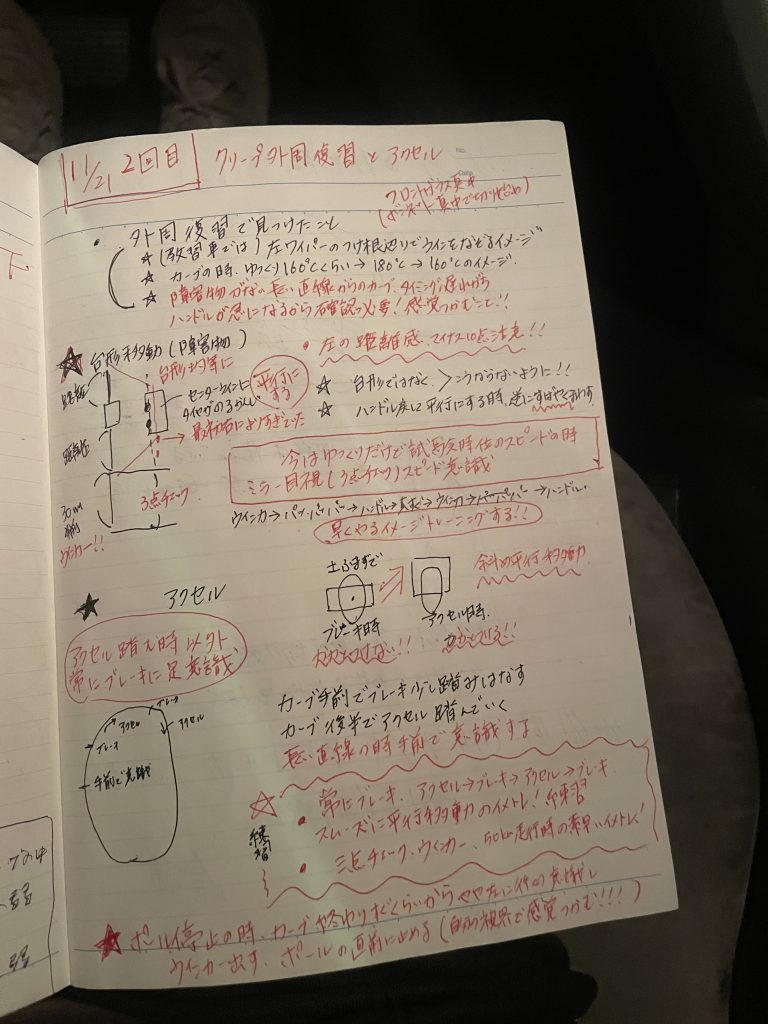 11/21 2回目 クリープ外周復習とアクセル
フロントガラス真中
(ボンネット真中で切り始め)
・外周復習で見つけたこと
☆(教習車では)左ワイパーのつけ根辺りでラインをなぞるイメージ
☆カーブの時、ゆっくり160℃くらい→180℃→160℃のイメージ.
☆障害物がない長い直線からのカーブ、タイミング遅れがち
ハンドルが急になるから確認必要!感覚つかむこと!!
・左の距離感、マイナス10点注意!!
★台形移動(障害物)
台形均等に
センターラインに
タイヤがのるくらい
平行にする
最初右によりすぎていた
☆台形ではなく、こうならないように!!
☆ハンドル戻して平行にする時、逆にすばやくまわす
3点チェック
30m
手前
ウィンカー!!
今はゆっくりだけで試験時位のスピードの時
ミラー目視(3点チェック)スピード意識
早くやるイメージトレーニングする!!
★アクセル
アクセル踏む時以外
常にブレーキに足意識
ブレーキ時
アクセル時
斜め平行移動
アクセル
ブレーキ
アクセル
ブレーキ
手前で意識
カーブ手前でブレーキ少し踏みはなす
カーブ後半でアクセル踏んでいく
長い直線の時手前で意識する
☆
練習
・常にブレーキ、アクセル→ブレーキ→アクセル→ブレーキ
スムーズに平行移動のイメトレ!練習
・三点チェック、ウィンカー、50km走行時の素早いイメトレ!
★ポール停止の時、カーブ終わりすぐくらいからやや左に
ウィンカー出す、ポールの直前に止める(自分の視界で感覚つかむ!!!)